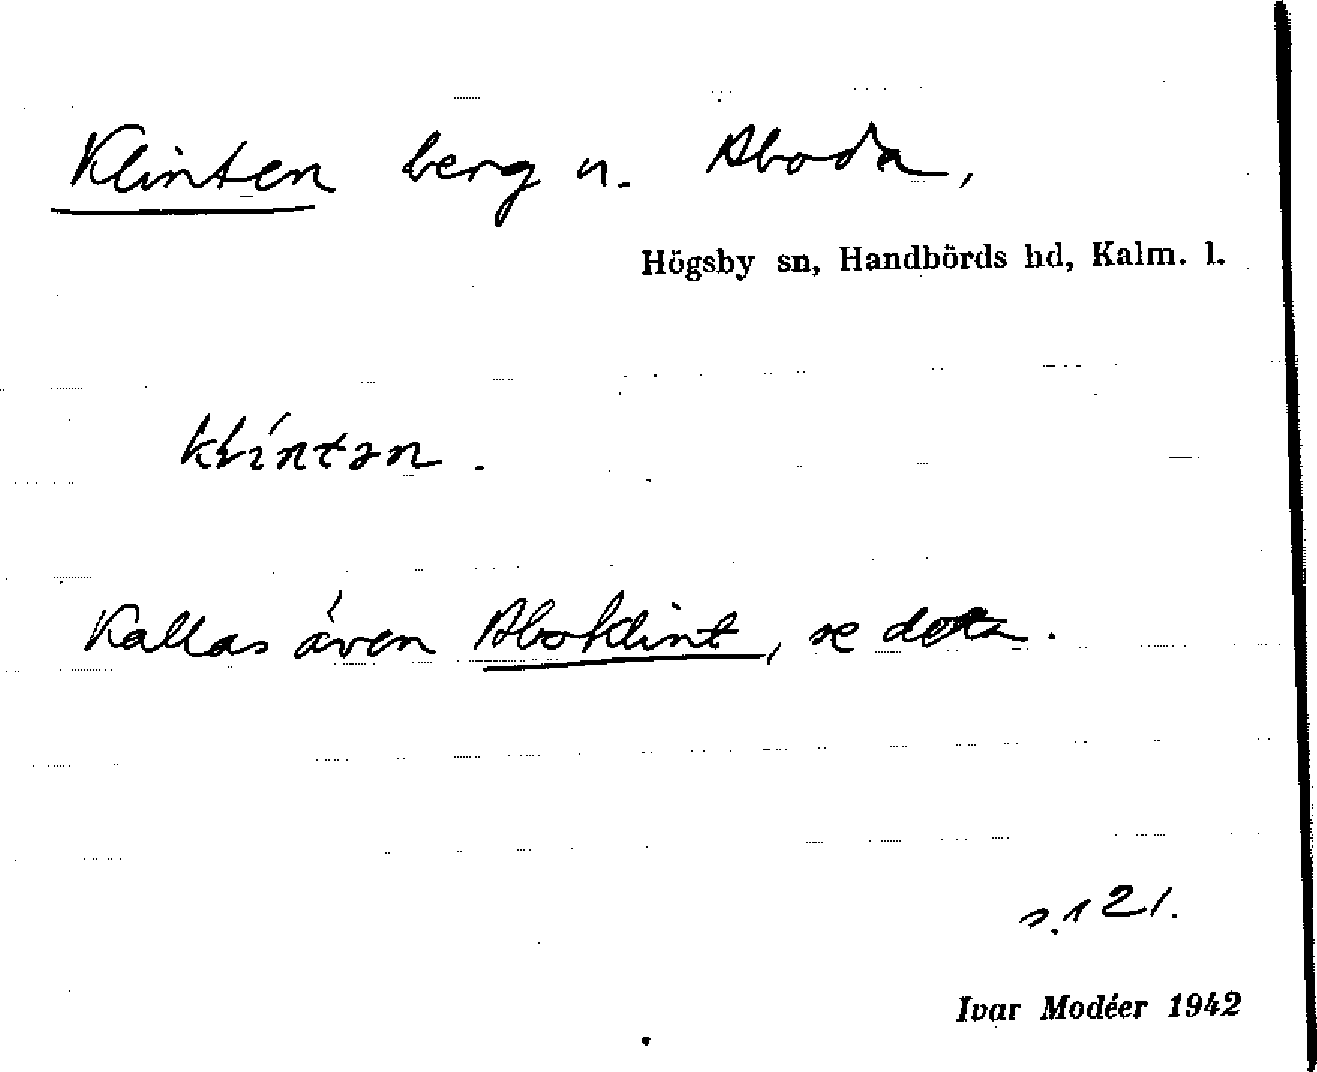 Klinten berg n. Aboda,
Högsby sn, Handbörds hd, Kalm. l.
klíntən.
Kallas även Aboklint, se detta.
s. 121.
Ivar Modéer 1942